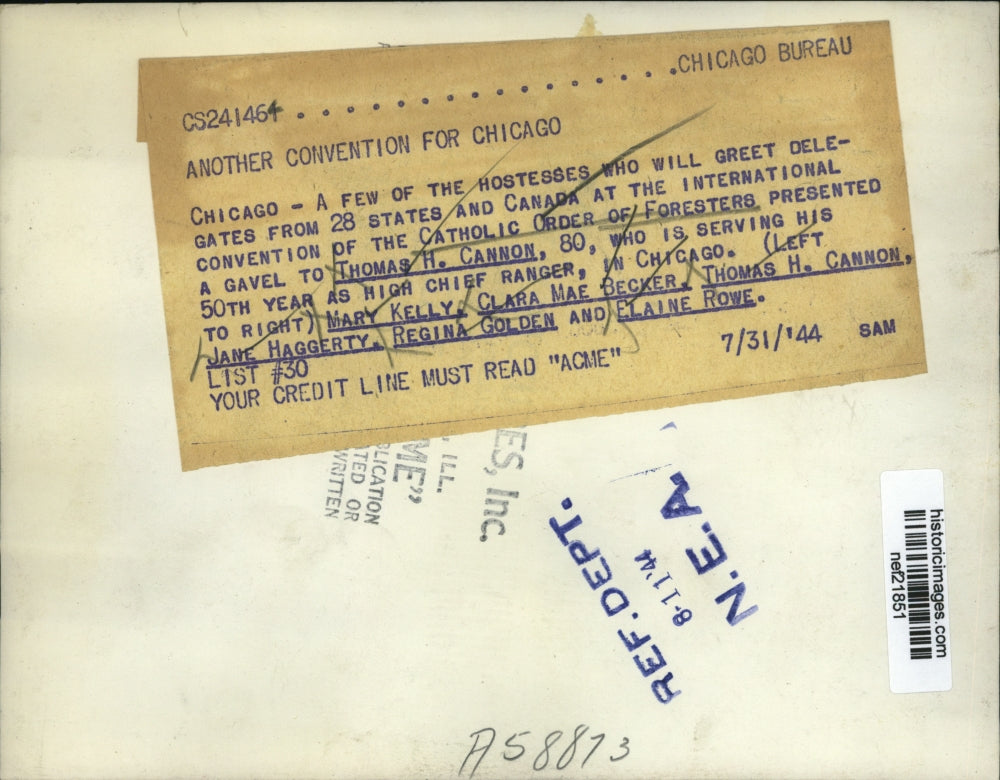 CS241464 . . . . . . . . . . . . . . . . . .CHICAGO BUREAU
ANOTHER CONVENTION FOR CHICAGO
CHICAGO - A FEW OF THE HOSTESSES WHO WILL GREET DELE-
GATES FROM 28 STATES AND CANADA AT THE INTERNATIONAL
CONVENTION OF THE CATHOLIC ORDER OF FORESTERS PRESENTED
A GAVEL TO THOMAS H. CANNON, 80, WHO IS SERVING HIS
50TH YEAR AS HIGH CHIEF RANGER, IN CHICAGO. (LEFT
TO RIGHT) MARY KELLY, CLARA MAE BECKER, THOMAS H. CANNON,
JANE HAGGERTY, REGINA GOLDEN AND ELAINE ROWE.
LIST #30 7/31/'44 SAM
YOUR CREDIT LINE MUST READ "ACME"
ES, Inc.
ILL.
ME"
LICATION
TED OR
WRITTEN
REF. DEPT.
8-11'44
N.E.A.
historicimages.com
nef21851
A58873